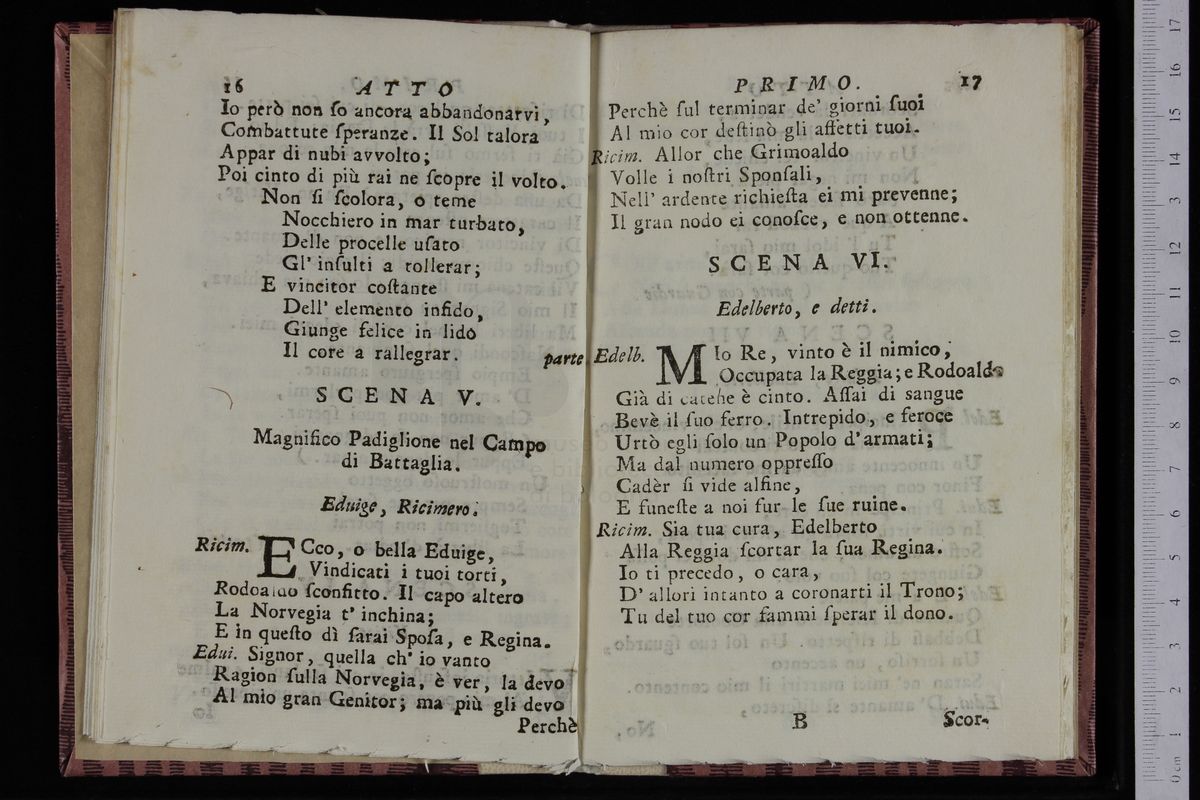 16 ATTO
Io però non ſo ancora abbandonarvi,
Combattute ſperanze. Il Sol talora
Appar di nubi avvolto;
Poi cinto di più rai ne ſcopre il volto.
Non ſi ſcolora, o teme
Nocchiero in mar turbato,
Delle procelle uſato
Gl' inſulti a tollerar;
E vincitor coſtante
Dell' elemento infido,
Giunge felice in lido
Il core a rallegrar. parte
SCENA V.
Magnifico Padiglione nel Campo
di Battaglia.
Eduige, Ricimero.
Ricim. ECco, o bella Eduige,
Vindicati i tuoi torti,
Rodoaldo ſconfitto. Il capo altero
La Norvegia t' inchina;
E in queſto dì ſarai Spoſa, e Regina.
Edui. Signor, quella ch' io vanto
Ragion ſulla Norvegia, è ver, la devo
Al mio gran Genitor; ma più gli devo
Perchè
PRIMO. 17
Perchè ſul terminar de' giorni ſuoi
Al mio cor deſtinò gli affetti tuoi.
Ricim. Allor che Grimoaldo
Volle i noſtri Sponſali,
Nell' ardente richieſta ei mi prevenne;
Il gran nodo ei conoſce, e non ottenne.
SCENA VI.
Edelberto, e detti.
Edelb. MIo Re, vinto è il nimico,
Occupata la Reggia; e Rodoaldo
Già di catene è cinto. Aſſai di sangue
Bevè il ſuo ferro. Intrepido, e feroce
Urtò egli ſolo un Popolo d' armati;
Ma dal numero oppreſſo
Cadèr ſi vide alfine,
E funeſte a noi fur le ſue ruine.
Ricim. Sia tua cura, Edelberto
Alla Reggia ſcortar la ſua Regina.
Io ti precedo, o cara,
D' allori intanto a coronarti il Trono;
Tu del tuo cor fammi ſperar il dono.
B Scor-